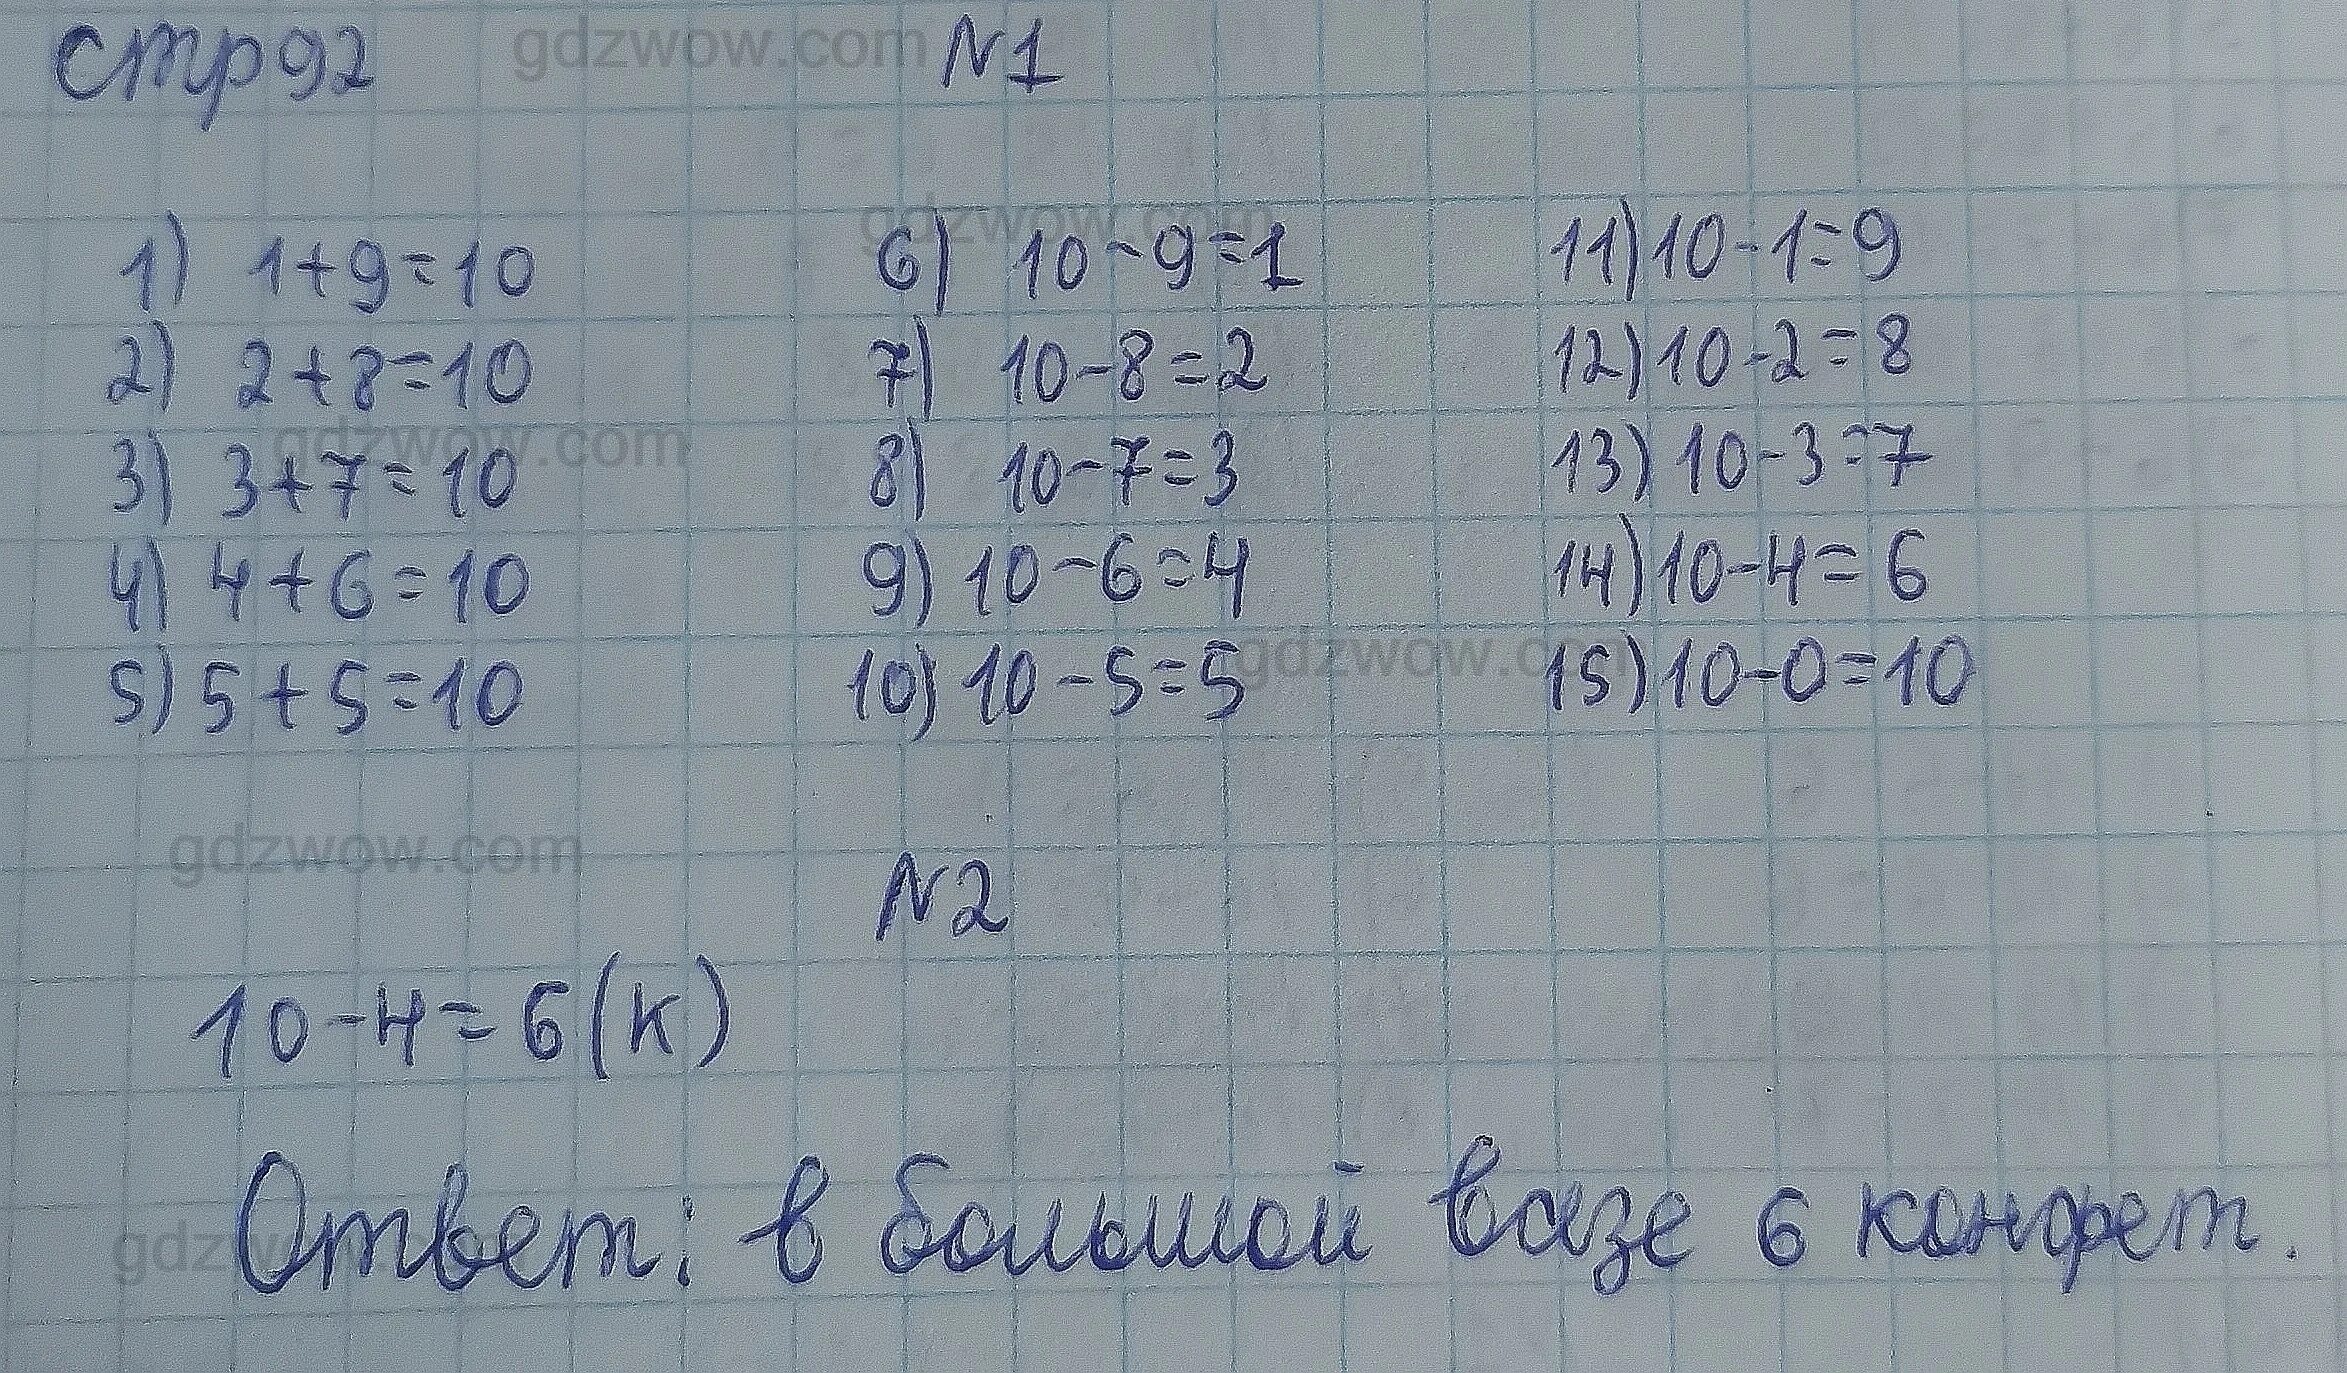 стр 92 gdzwow.com №1
gdzwow.com
1) 1+9=10 6) 10-9=1 11) 10-1=9
2) 2+8=10 7) 10-8=2 12) 10-2=8
gdzwow.com
3) 3+7=10 8) 10-7=3 13) 10-3=7
4) 4+6=10 9) 10-6=4 14) 10-4=6
5) 5+5=10 10) 10-5=5 15) 10-0=10
gdzwow.com
gdzwow.com
№2
10-4=6(к)
Ответ: в большой вазе 6 конфет.
gdzwow.com